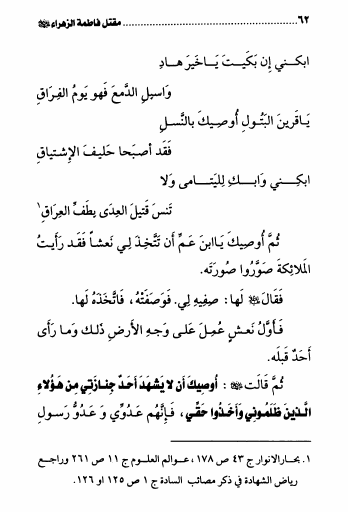 ٦٢ ........ مقتل فاطمة الزهراء
ابكني إن بَكَيتَ يَاخَيرَ هادِ
وَاسبِلِ الدَّمعَ فَهو يَومُ الفِراقِ
يَاقَرينَ البَتُولِ أُوصِيكَ بالنَّسلِ
فَقَد أصبَحا حَليفَ الإشتياقِ
ابكِني وَابكِ لِليَتامى وَلا
تَنسَ قَتيلَ العِدَى بِطَفِّ العِراقِ ١
ثُمَّ أُوصِيكَ يَاابنَ عَمِّ أَن تَتَّخِذَ لِي نَعشاً فَقَد رَأيتُ
المَلائِكةَ صَوَّرُوا صُورَتَه.
فَقَالَ لَها: صِفِيهِ لِي. فَوَصَفَتْهُ، فَاتَّخَذَهُ لَها.
فَأوَّلُ نَعشٍ عُمِلَ عَلَى وَجهِ الأرضِ ذلكَ وَما رَأى
أحَدٌ قَبلَه.
ثُمَّ قالَت: أُوصِيكَ أن لا يَشهَدَ أحَدٌ جِنازَتِي مِن هَؤُلاءِ
الَّذينَ ظَلَمُوني وَأخَذُوا حَقِّي، فَإنَّهُم عَدُوِّي وَعَدُوُّ رَسولِ
١. بحارالانوار ج ٤٣ ص ١٧٨، عوالم العلوم ج ١١ ص ٢٦١ وراجع
رياض الشهادة في ذكر مصائب السادة ج ١ ص ١٢٥ او ١٢٦.